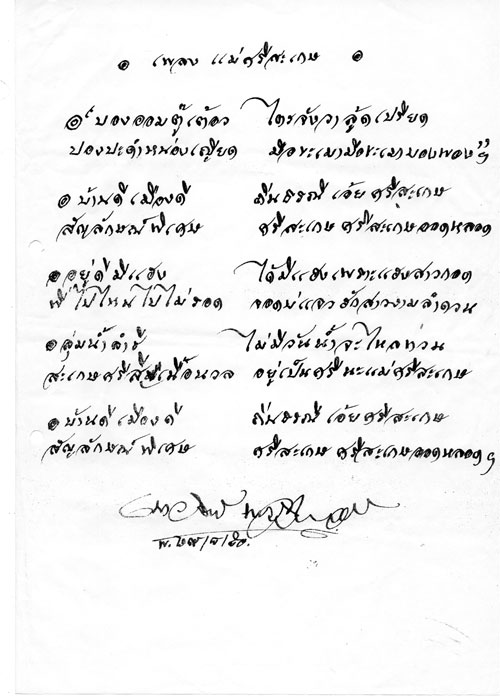 ๏ เพลง แม่ศรีสะเกษ ๏
๏ " บองออมตู๊เต้อว ไดรจังวา ลู้ดเปรียด
ปองปะดำหน่องเญียด มือขะเมามือขะเมาบองพอง " ฯ
๏ บ้านดีเมืองดี ถิ่นธรณีเอ้ยศรีสะเกษ
สัญลักษณ์พิเศษ ศรีสะเกษ ศรีสะเกษดอดหลอด
๏ อยู่ดีมีแฮง ได้มีแฮงเพราะแฮงสาวกอด
พี่ไปไหนไปไม่รอด จอดบ่แจวฮักสาวงามลำดวน
๏ ลุ่มน้ำลำชี ไม่มีวันน้ำจะไหลทวน
สะเกษศรีสี เนื้อนวล อยู่เป็นศรีนะแม่ศรีสะเกษ
๏ บ้านดีเมืองดี ถิ่นธรณีเอ้ยศรีสะเกษ
สัญลักษณ์พิเศษ ศรีสะเกษ ศรีสะเกษดอดหลอด ฯ